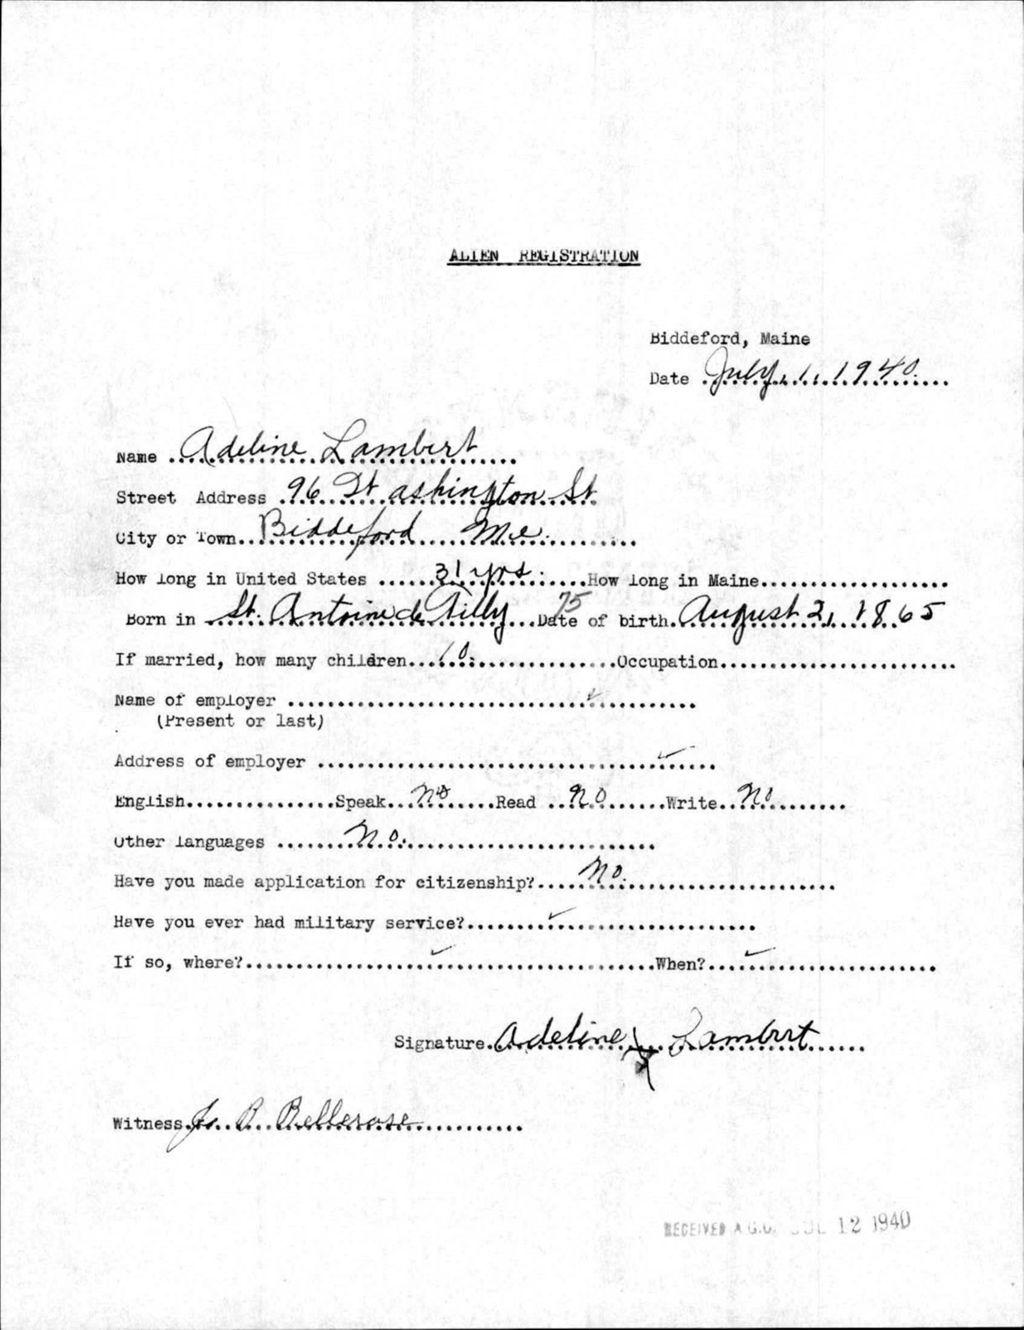 ALIEN REGISTRATION
Biddeford, Maine
Date July 1, 1940.
Name Adeline Lambert
Street Address 96 Washington St.
City or Town Biddeford Me.
How long in United States 31 yrs. How long in Maine
75
Born in St. Antoine de Tilly Date of birth August 2, 1865
If married, how many children 10. Occupation
Name of employer
(Present or last)
Address of employer
English Speak No Read No Write No
Other languages No.
Have you made application for citizenship? No.
Have you ever had military service?
If so, where? When?
Signature Adeline X Lambert
Witness J. B. Bellerose
RECEIVED A.G.O. JUL 12 1940